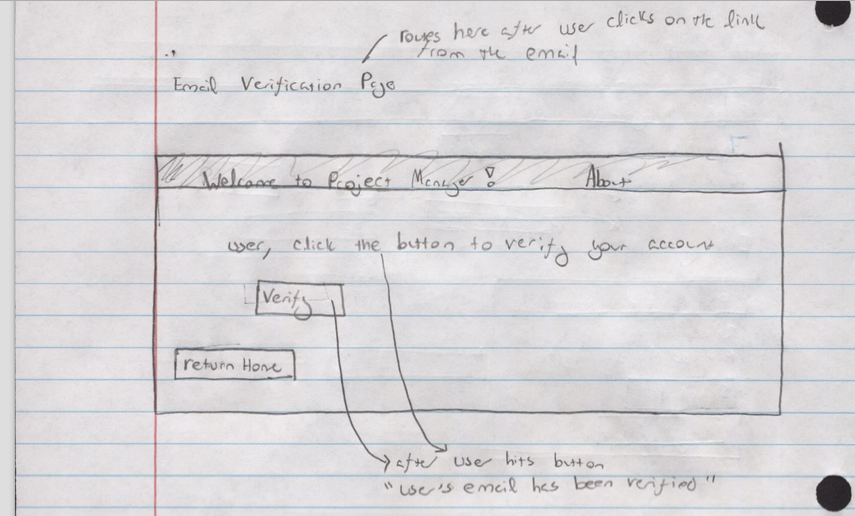 routes here after user clicks on the link
from the email
Email Verification Page
Welcome to Project Manager! About
user, click the button to verify your account
Verify
return Home
after user hits button
"user's email has been verified"